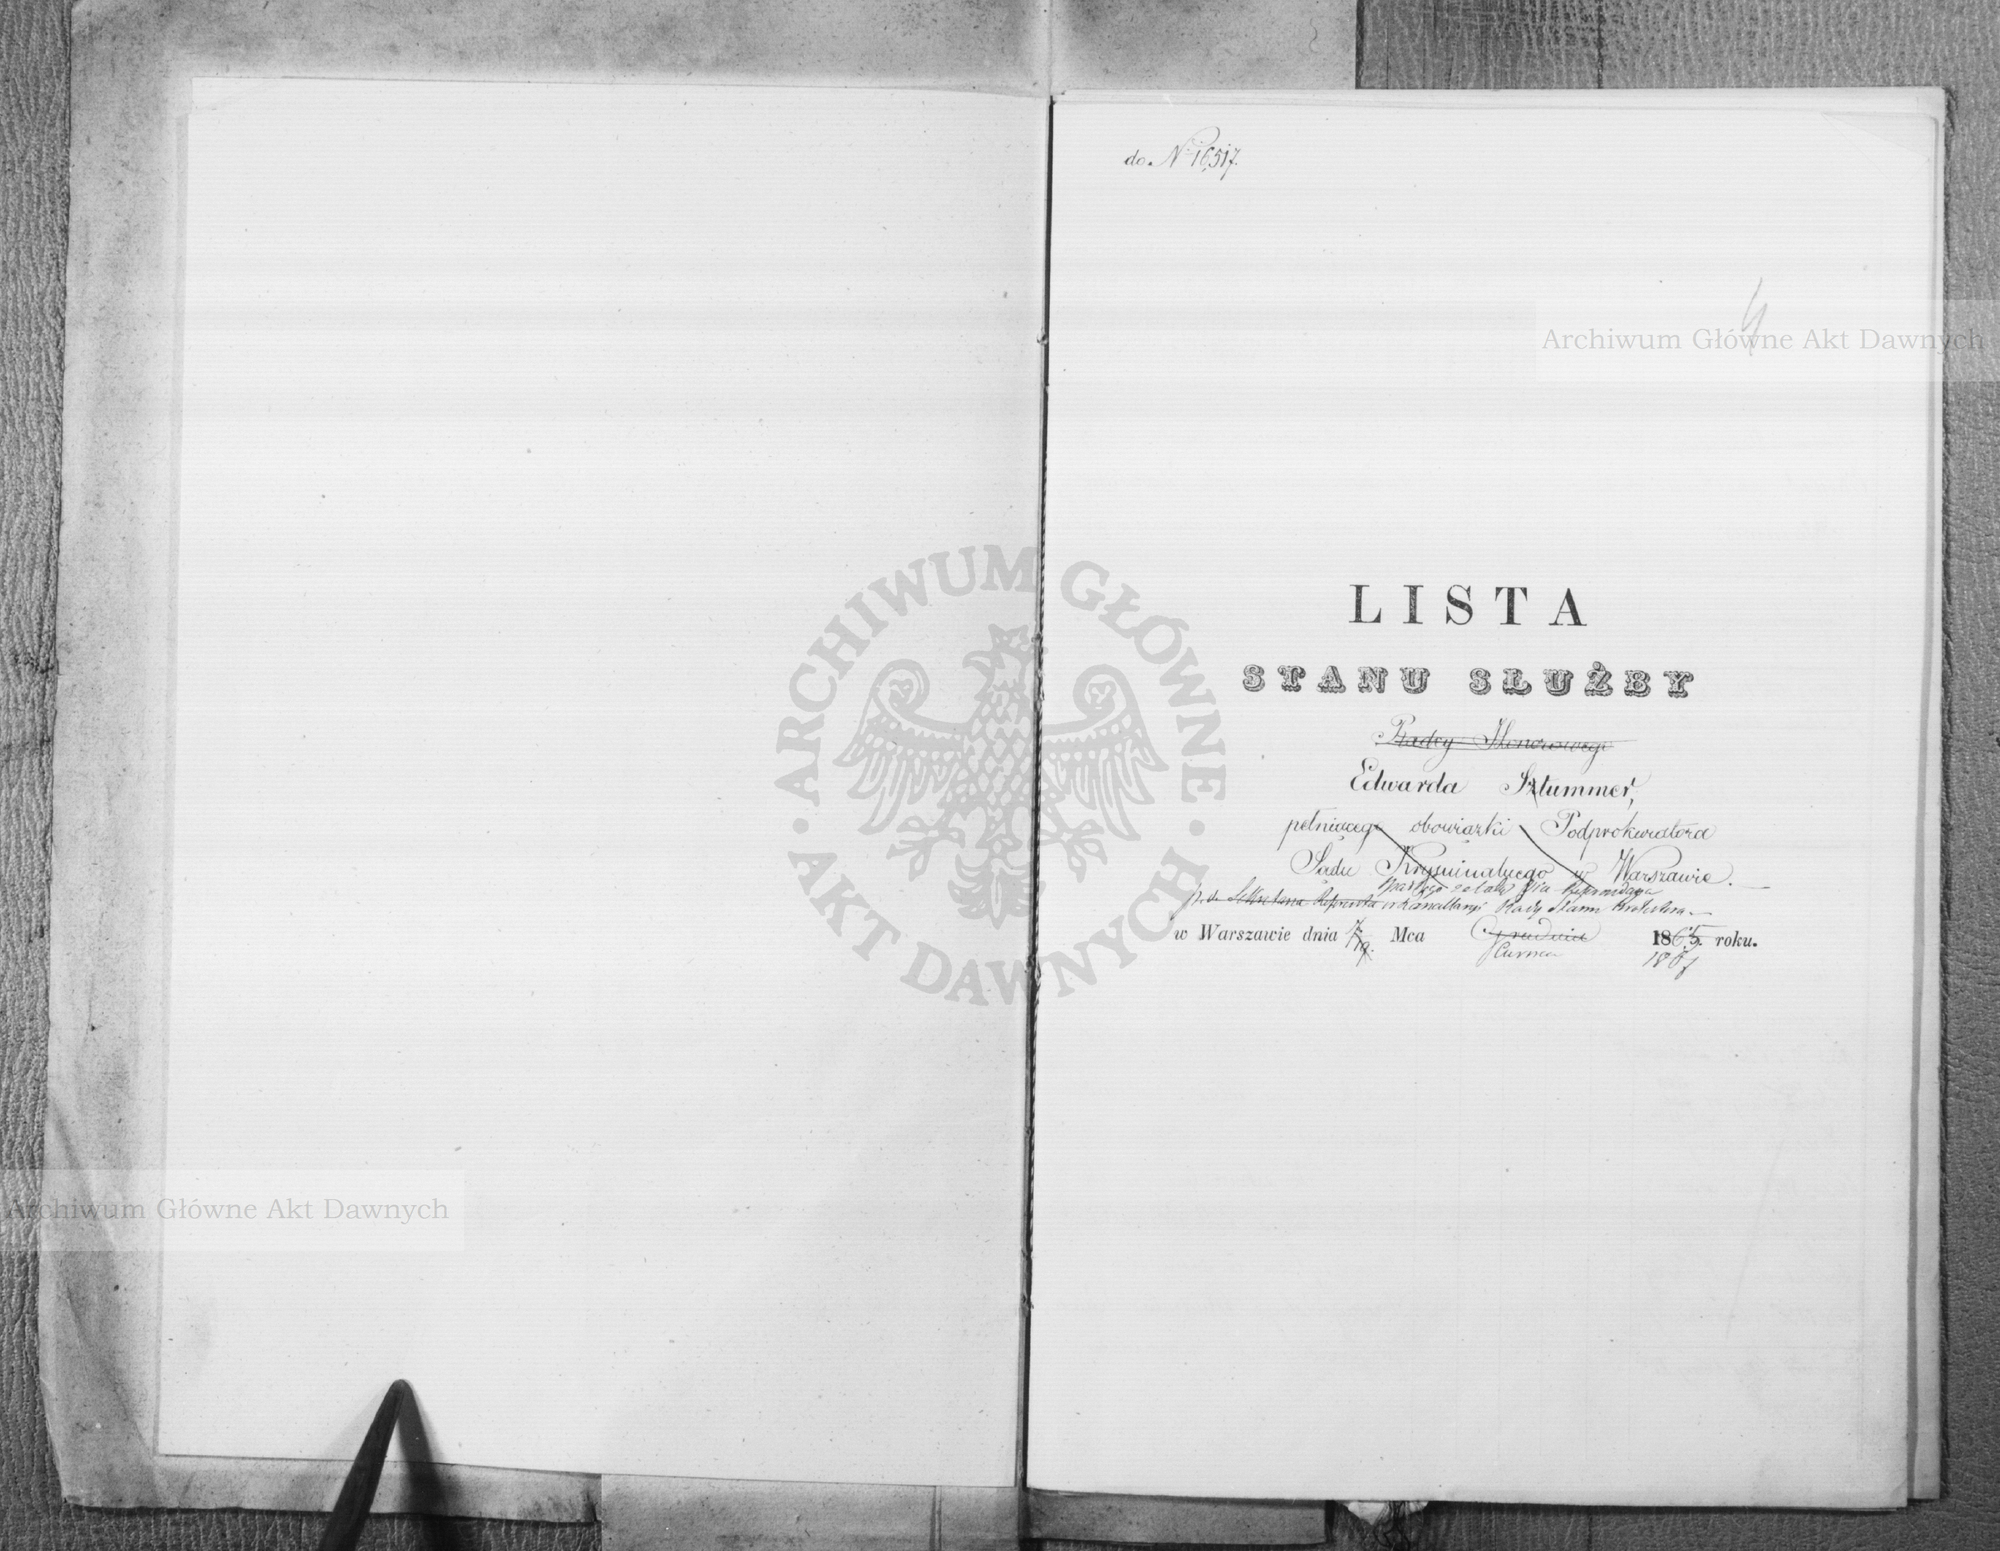 do. N. 16,517.
4
Archiwum Główne Akt Dawnych
LISTA
STANU SŁUŻBY
Radcy Honorowego
Edwarda Sztummer,
pełniącego obowiązki Podprokuratora
Sądu Kryminalnego w Warszawie.
p. o. Sekretarza w Kancellaryi Rady Stanu Królestwa
w Warszawie dnia 7/19. Mca Grudnia 1865. roku.
Czerwca 1867
ARCHIWUM GŁÓWNE AKT DAWNYCH
Archiwum Główne Akt Dawnych